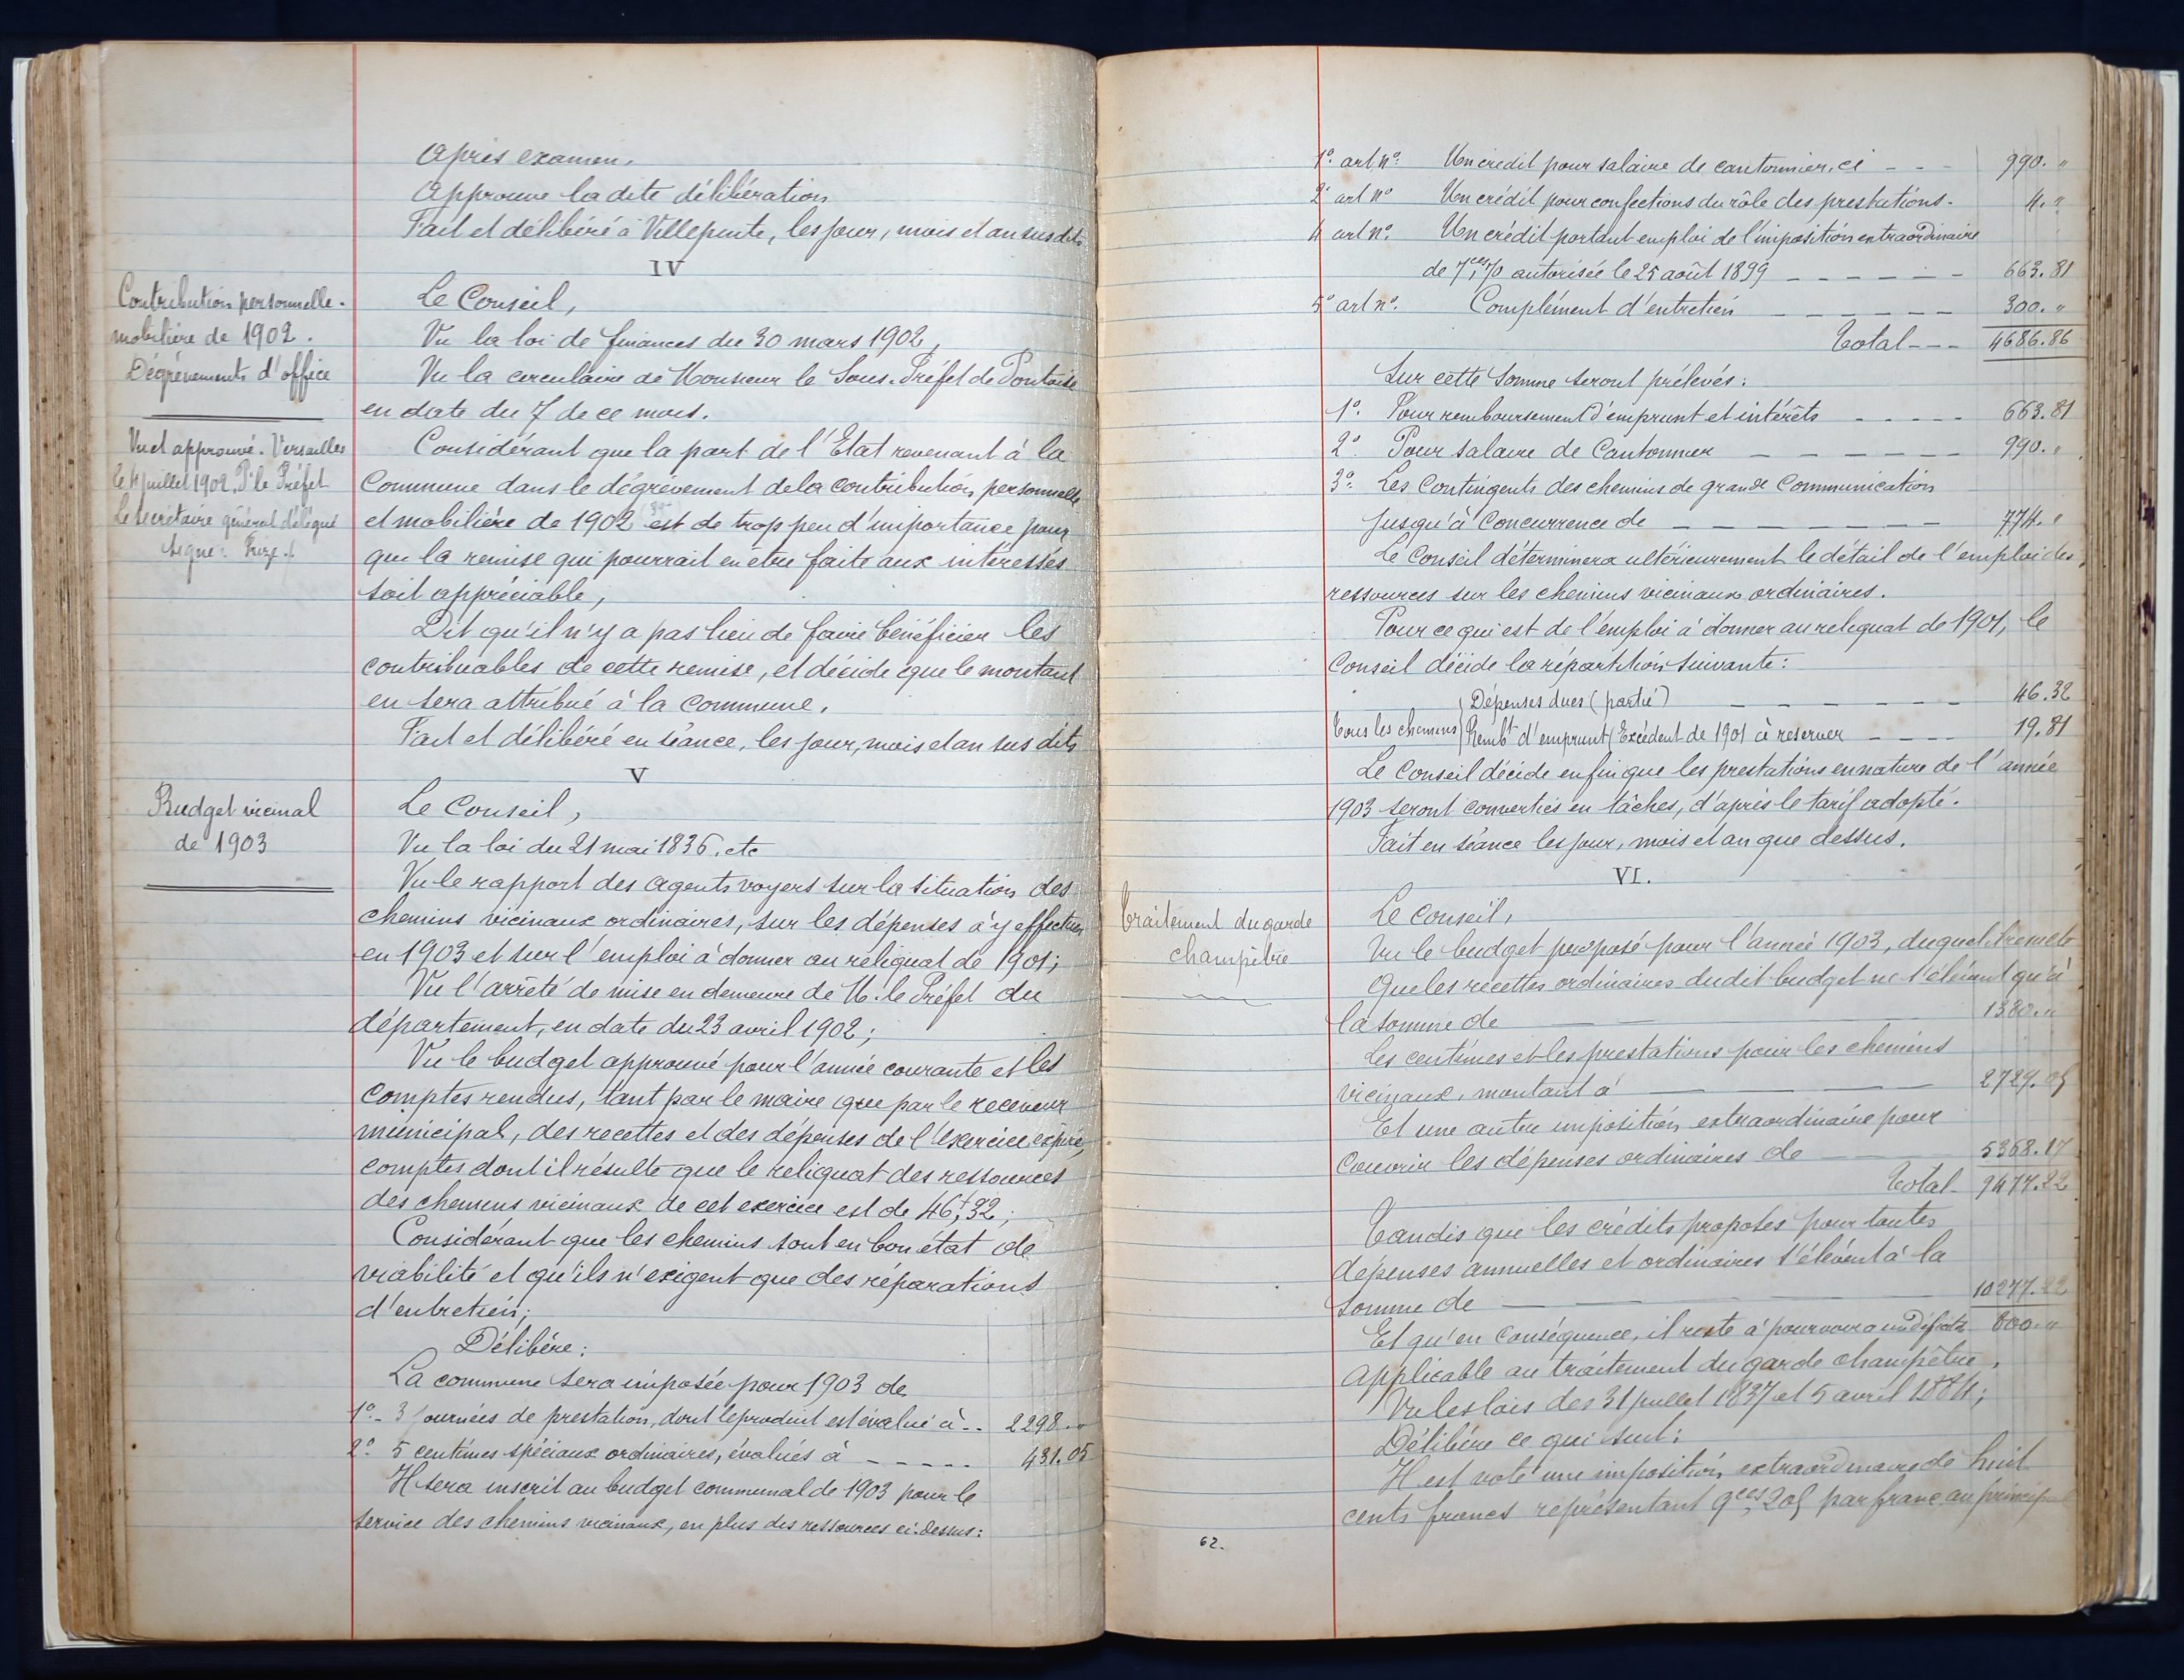 Après examen,
Approuve la dite délibération
Fait et délibéré à Villepinte, les jour, mois et an sus dits
IV
Contribution personnelle-
mobilière de 1902.
Dégrèvements d'office
Vu et approuvé. Versailles
le 4 juillet 1902, Pr le Préfet
Le Secrétaire général délégué
Signé:
Le Conseil,
Vu la loi de finances du 30 mars 1902,
Vu la circulaire de Monsieur le Sous-Préfet de Pontoise
en date du 7 de ce mois.
Considérant que la part de l'Etat revenant à la
Commune dans le dégrèvement de la contribution personnelle
et mobilière de 1902 est de trop peu d'importance pour
que la remise qui pourrait en être faite aux intéressés
soit appréciable,
Dit qu'il n'y a pas lieu de faire bénéficier les
contribuables de cette remise, et décide que le montant
en sera attribué à la Commune.
Fait et délibéré en séance, les jour, mois et an sus dits
V
Budget vicinal
de 1903
Le Conseil,
Vu la loi du 21 mai 1836, etc
Vu le rapport des agents voyers sur la situation des
chemins vicinaux ordinaires, sur les dépenses à y effectuer
en 1903 et sur l'emploi à donner au reliquat de 1901;
Vu l'arrêté de mise en demeure de M. le Préfet du
département, en date du 23 avril 1902;
Vu le budget approuvé pour l'année courante et les
comptes rendus, tant par le maire que par le receveur
municipal, des recettes et des dépenses de l'exercice expiré,
comptes dont il résulte que le reliquat des ressources
des chemins vicinaux de cet exercice est de 46f,32;
Considérant que les chemins sont en bon état de
viabilité et qu'ils n'exigent que des réparations
d'entretien;
Délibère:
La commune sera imposée pour 1903 de
1°- 3 journées de prestation, dont le produit est évalué à -- 2298. "
2° 5 centimes spéciaux ordinaires, évalués à ----- 431.05
Il sera inscrit au budget communal de 1903 pour le
service des chemins vicinaux, en plus des ressources ci-dessus:
1° art. n°. Un crédit pour salaire de cantonnier, ci --- 990. "
2° art n° Un crédit pour confections du rôle des prestations - 4. "
4 art n°. Un crédit portant emploi de l'imposition extraordinaire
de 7ces,70 autorisée le 25 août 1899 ------ 663.81
5° art n°. Complément d'entretien ------ 300. "
Total --- 4686.86
Sur cette somme seront prélevés:
1°. Pour remboursement d'emprunt et intérêts ----- 663.81
2° Pour salaire de Cantonnier ------ 990. "
3° Les Contingents des chemins de grande Communication
jusqu'à Concurrence de ------- 774. "
Le Conseil déterminera ultérieurement le détail de l'emploi des
ressources sur les chemins vicinaux ordinaires.
Pour ce qui est de l'emploi à donner au reliquat de 1901, le
Conseil décide la répartition suivante:
Dépenses dues (partie) ------ 46.32
Tous les chemins Rembt d'emprunt Excédent de 1901 à réserver ---- 19.81
Le Conseil décide enfin que les prestations en nature de l'année
1903 seront converties en tâches, d'après le tarif adopté.
Fait en séance les jour, mois et an que dessus.
VI.
Traitement du garde
champêtre
Le Conseil,
Vu le budget proposé pour l'année 1903, duquel il résulte
Que les recettes ordinaires dudit budget ne s'élèvent qu'à
la somme de 1380. "
Les centimes et les prestations pour les chemins
vicinaux, montant à 2729.05
Et une autre imposition extraordinaire pour
Couvrir les dépenses ordinaires de 5368.17
Total - 9477.22
Tandis que les crédits proposés pour toutes
dépenses annuelles et ordinaires s'élèvent à la
somme de 10277.22
Et qu'en Conséquence, il reste à pourvoir à un déficit de 800. "
applicable au traitement du garde champêtre,
Vu les lois des 31 juillet 1837 et 5 avril 1884;
Délibère ce qui suit:
Il est voté une imposition extraordinaire de huit
cents francs représentant 9ces,205 par franc au principal
62.